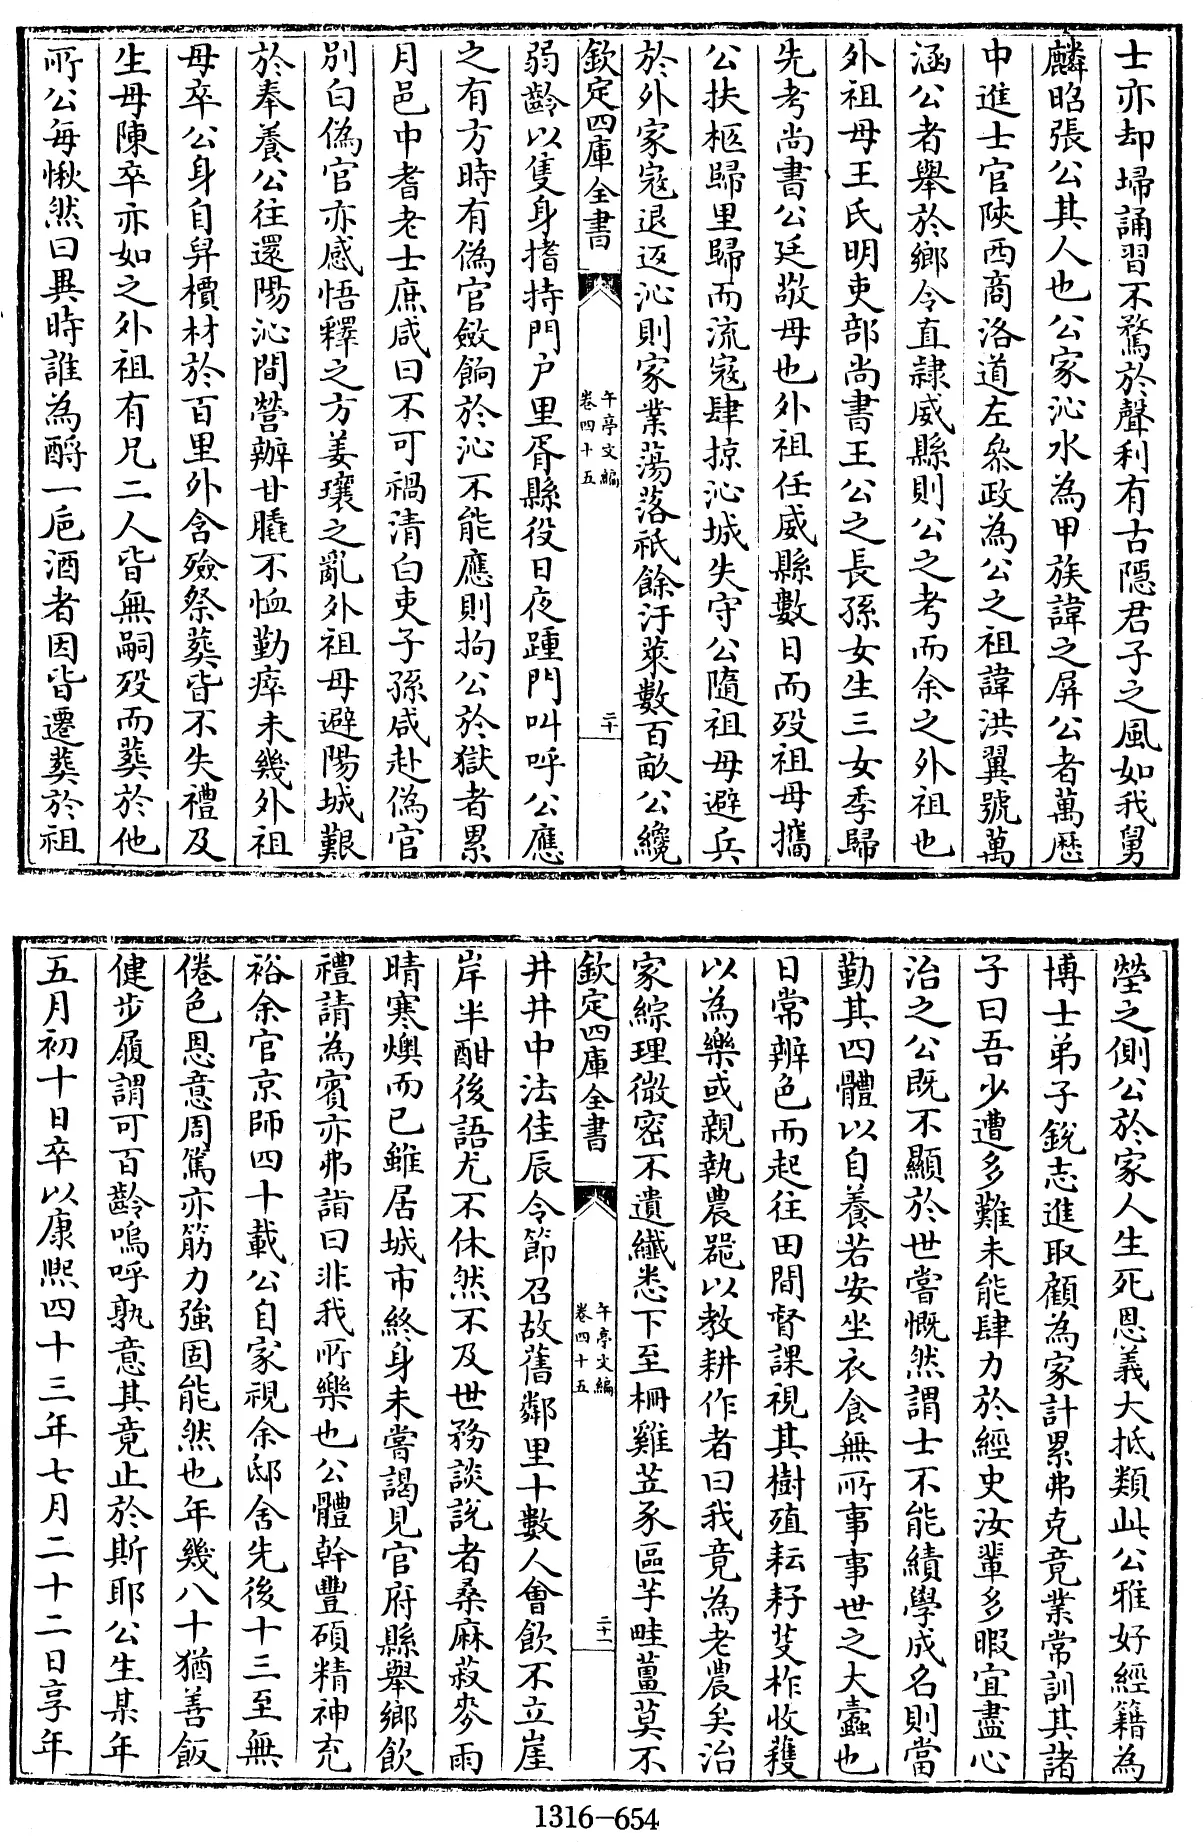 士亦却埽誦習不騖於聲利有古隱君子之風如我舅
麟昭張公其人也公家沁水為甲族諱之屏公者萬歷
中進士官陜西商洛道左叅政為公之祖諱洪翼號萬
涵公者舉於鄉令直隷威縣則公之考而余之外祖也
外祖母王氏明吏部尚書王公之長孫女生三女季歸
先考尚書公廷敬母也外祖任威縣數日而殁祖母攜
公扶柩歸里歸而流寇肆掠沁城失守公隨祖母避兵
於外家寇退返沁則家業蕩落祇餘汙萊數百畝公纔
欽定四庫全書
午亭文編
卷四十五
二十
弱齡以隻身搘持門户里胥縣役日夜踵門叫呼公應
之有方時有偽官斂餉於沁不能應則拘公於獄者累
月邑中耆老士庶咸曰不可禍清白吏子孫咸赴偽官
别白偽官亦感悟釋之方姜瓖之亂外祖母避陽城艱
於奉養公往還陽沁間營辦甘膬不恤勤瘁未幾外祖
母卒公身自舁櫝材於百里外含殮祭葬皆不失禮及
生母陳卒亦如之外祖有兄二人皆無嗣殁而葬於他
所公每愀然曰異時誰為酹一巵酒者因皆遷葬於祖
塋之側公於家人生死恩義大抵類此公雅好經籍為
博士弟子銳志進取顧為家計累弗克竟業常訓其諸
子曰吾少遭多難未能肆力於經史汝輩多暇宜盡心
治之公既不顯於世嘗慨然謂士不能績學成名則當
勤其四體以自養若安坐衣食無所事事世之大蠧也
日常辨色而起往田間督課視其樹殖耘耔芟柞收穫
以為樂或親執農器以教耕作者曰我竟為老農矣治
家綜理微密不遺纎悉下至柵雞笠豕區芋畦薑莫不
欽定四庫全書
午亭文編
卷四十五
二十一
井井中法佳辰令節召故舊鄰里十數人會飲不立崖
岸半酣後語尤不休然不及世務談說者桑麻菽麥雨
晴寒燠而已雖居城市終身未嘗謁見官府縣舉鄉飲
禮請為賓亦弗詣曰非我所樂也公體幹豐碩精神充
裕余官京師四十載公自家視余邸舍先後十三至無
倦色恩意周篤亦筋力強固能然也年幾八十猶善飯
健步履謂可百齡嗚呼孰意其竟止於斯耶公生某年
五月初十日卒以康熙四十三年七月二十二日享年
1316-654